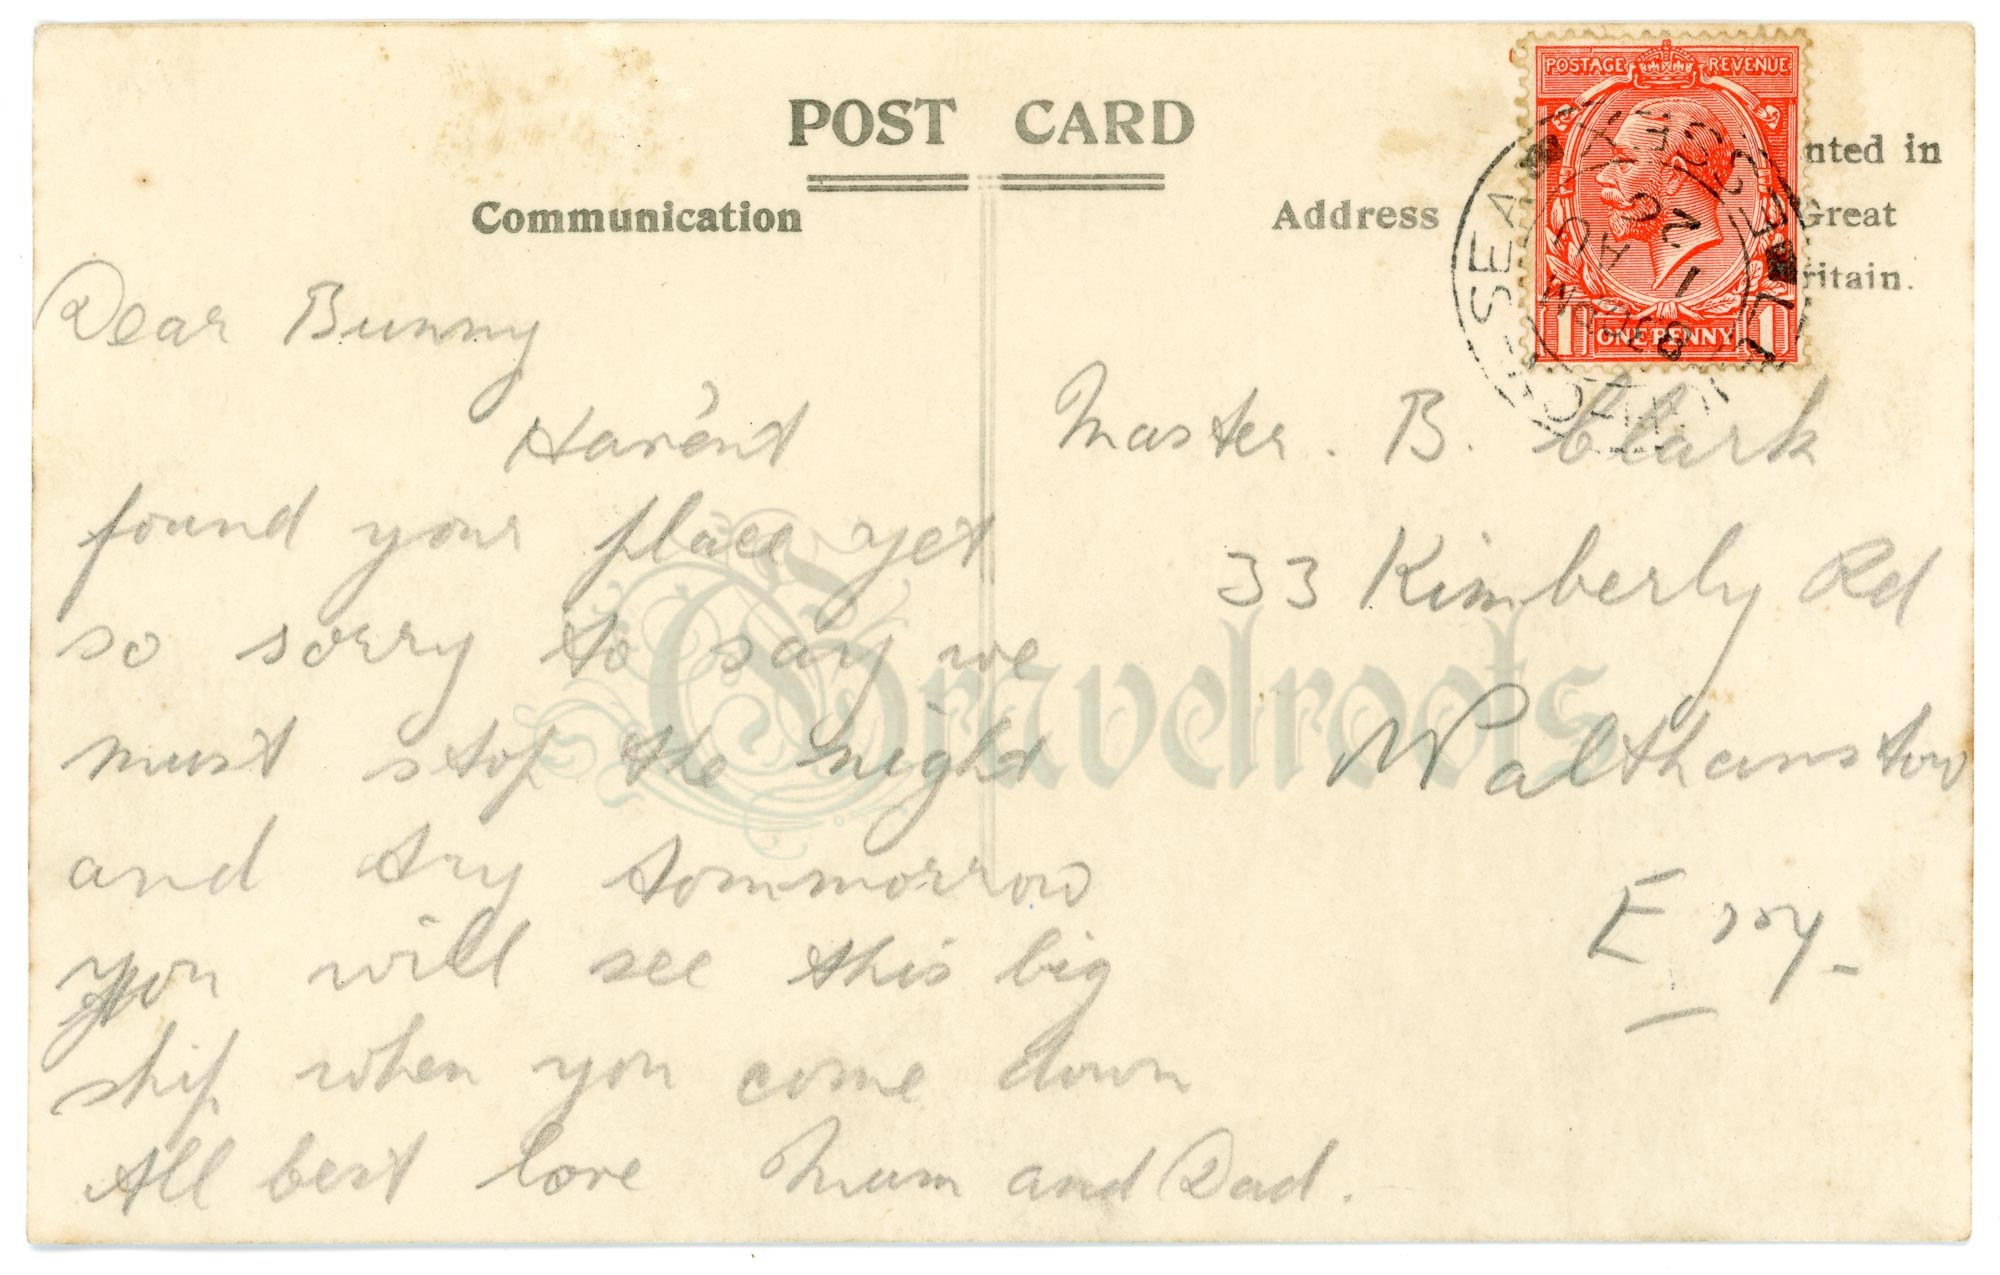 POST CARD
Communication
Address
nted in
Great
ritain.
POSTAGE REVENUE
1 ONE PENNY 1
Dear Bunny
Hav'ent
found your place yet
so sorry to say we
must stop the night
and try tommorrow
you will see this big
ship when you come down
All best love Mum and Dad.
Master. B. Clark
33 Kimberly Rd
Walthamstow
Gravelroots